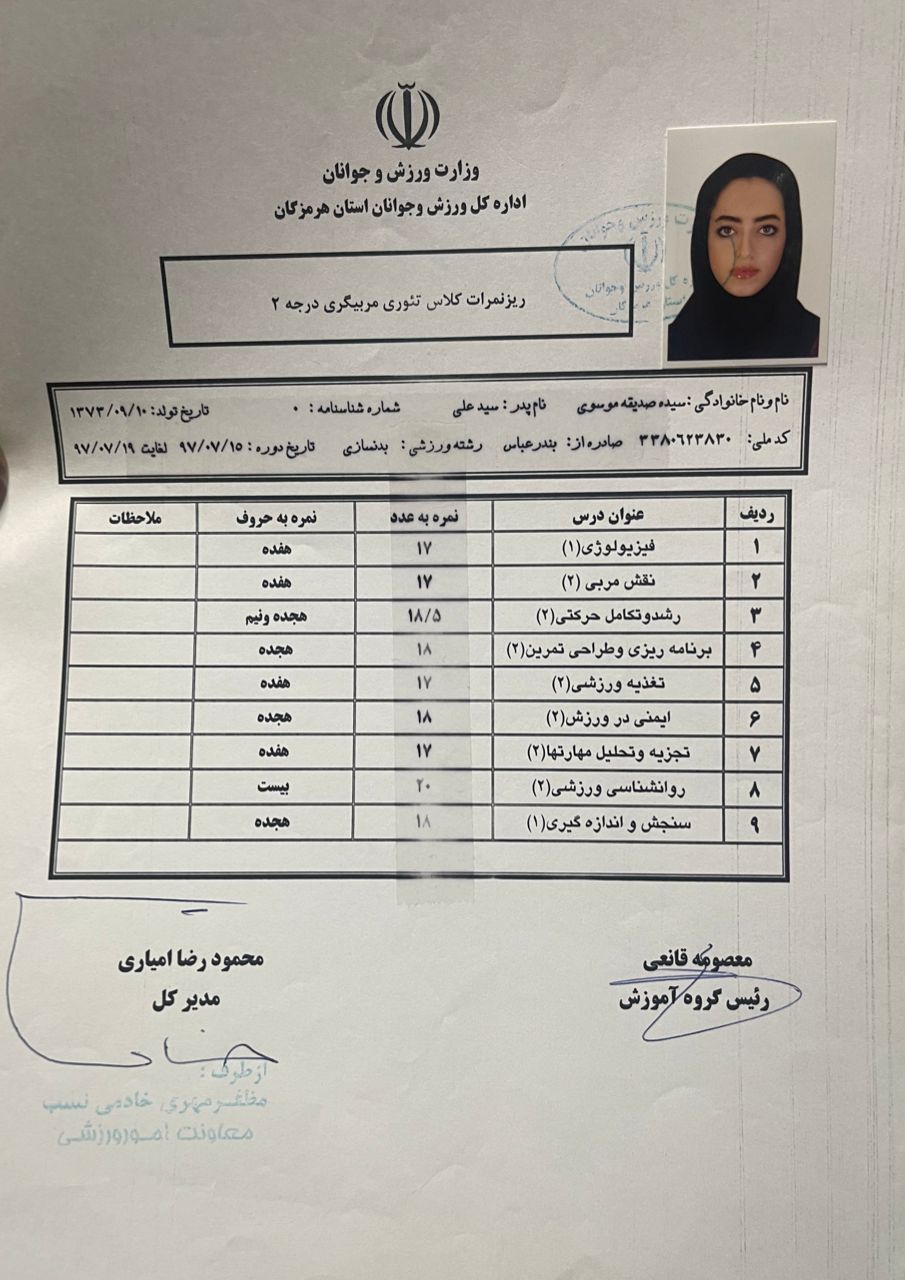 وزارت ورزش و جوانان
اداره کل ورزش وجوانان استان هرمزگان
ریزنمرات کلاس تئوری مربیگری درجه ۲
نام ونام خانوادگی: سیده صدیقه موسوی نام پدر: سید علی شماره شناسنامه: ۰ تاریخ تولد: ۱۳۷۳/۰۹/۱۰
کد ملی: ۳۳۸۰۶۲۳۸۳۰ صادره از: بندرعباس رشته ورزشی: بدنسازی تاریخ دوره: ۹۷/۰۷/۱۵ لغایت ۹۷/۰۷/۱۹
ردیف عنوان درس نمره به عدد نمره به حروف ملاحظات
۱ فیزیولوژی(۱) ۱۷ هفده
۲ نقش مربی (۲) ۱۷ هفده
۳ رشدوتکامل حرکتی(۲) ۱۸/۵ هجده ونیم
۴ برنامه ریزی وطراحی تمرین(۲) ۱۸ هجده
۵ تغذیه ورزشی(۲) ۱۷ هفده
۶ ایمنی در ورزش(۲) ۱۸ هجده
۷ تجزیه وتحلیل مهارتها(۲) ۱۷ هفده
۸ روانشناسی ورزشی(۲) ۲۰ بیست
۹ سنجش و اندازه گیری(۱) ۱۸ هجده
معصومه قانعی
رئیس گروه آموزش
محمود رضا امیاری
مدیر کل
از طرف :
مظفر مهری خادمی نسب
معاونت امور ورزشی